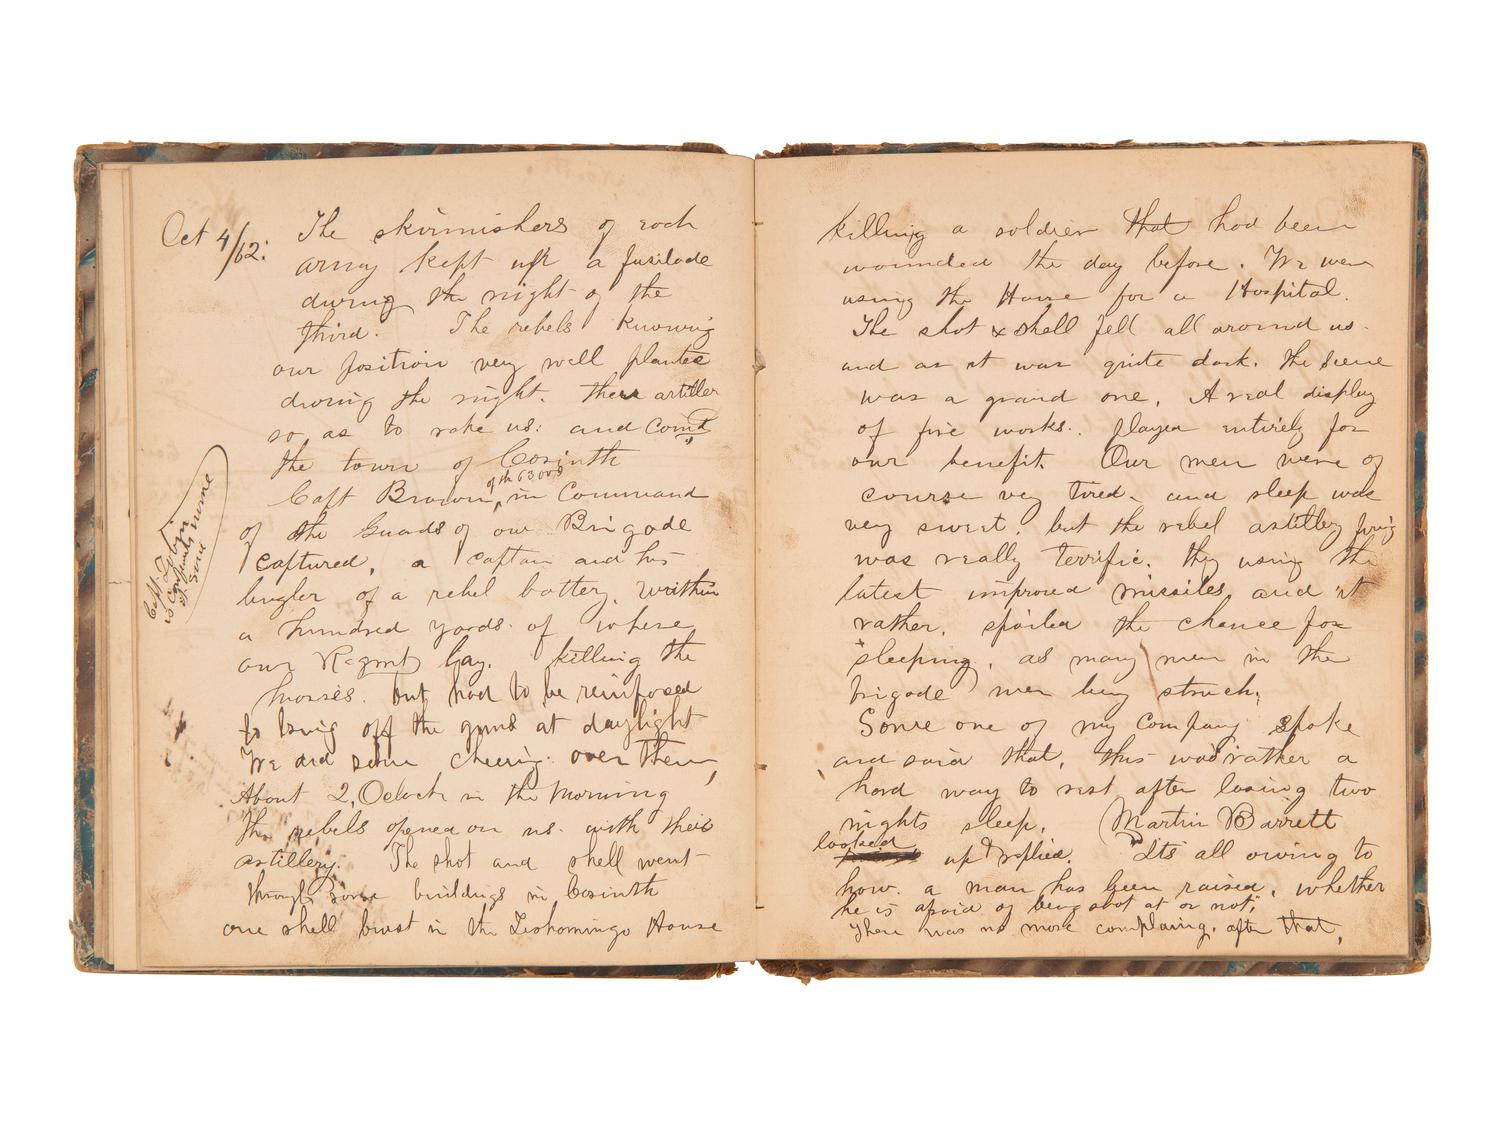 Oct 4/62: The skirmishers of each
army kept up a fusilade
during the night of the
third. The rebels knowing
our position very well planted
during the night. their artiller
so as to rake us: and comd
the town of Corinth
Capt Brown, of the 63 in Command
of the Guards of our Brigade
captured, a captain and his
bugler of a rebel battery, within
a hundred yards of where
our Regmt lay. killing the
horses. but had to be reinforced
to bring off the guns at daylight
We did some cheering over them,
About 2, Oclock in the morning
The rebels opened on us. with their
artillery. The shot and shell went
through some buildings in Corinth
one shell burst in the Tishomingo House
Capt. Tobin
is Captured name
killing a soldier that had been
wounded the day before. We were
using the House for a Hospital.
The shot & shell fell all around us.
and as it was quite dark. the Scene
was a grand one. A real display
of fire works. played entirely for
our benefit. Our men were of
course very tired. and sleep was
very sweet. but the rebel artillery firing
was really terrific. they using the
latest improved missiles, and it
rather. spoiled the chance for
sleeping, as many men in the
brigade men being struck.
Some one of my Company spoke
and said that, this was rather a
hard way to rest after losing two
nights sleep. Martin Barrett
looked up & replied. "Its all owing to
how. a man has been raised, whether
he is afraid of being shot at or not,"
There was no more complaing. after that.